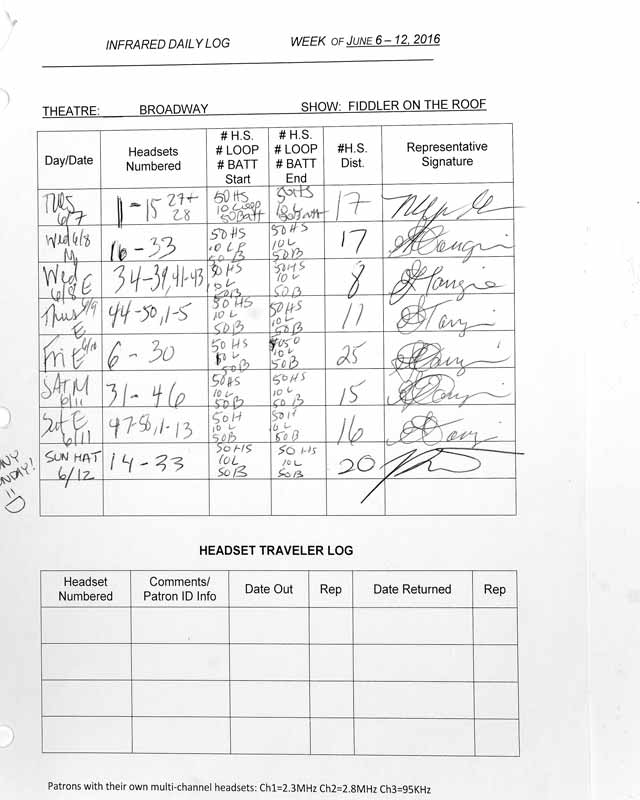 INFRARED DAILY LOG WEEK OF JUNE 6 – 12, 2016
THEATRE: BROADWAY SHOW: FIDDLER ON THE ROOF
Day/Date Headsets Numbered # H.S. # LOOP # BATT Start # H.S. # LOOP # BATT End #H.S. Dist. Representative Signature
TUES 6/7 1-15 27+ 28 50 HS 10 Loop 50 Batt 50 HS 10 L 50 Batt 17
Wed 6/8 M 16-33 50 HS 10 LP 50 B 50 HS 10 L 50 B 17
Wed 6/8 E 34-39, 41-43 50 HS 10 L 50 B 50 HS 10 L 50 B 8
Thus 6/9 E 44-50, 1-5 50 HS 10 L 50 B 50 HS 10 L 50 B 11
Fri E 6/10 6-30 50 HS 10 L 50 B 5050 10 L 50 B 25
SAT M 6/11 31-46 50 HS 10 L 50 B 50 HS 10 L 50 B 15
Sat E 6/11 47-50, 1-13 50 H 10 L 50 B 50 H 10 L 50 B 16
SUN MAT 6/12 14-33 50 HS 10 L 50 B 50 HS 10 L 50 B 20
HEADSET TRAVELER LOG
Headset Numbered Comments/ Patron ID Info Date Out Rep Date Returned Rep
Patrons with their own multi-channel headsets: Ch1=2.3MHz Ch2=2.8MHz Ch3=95KHz